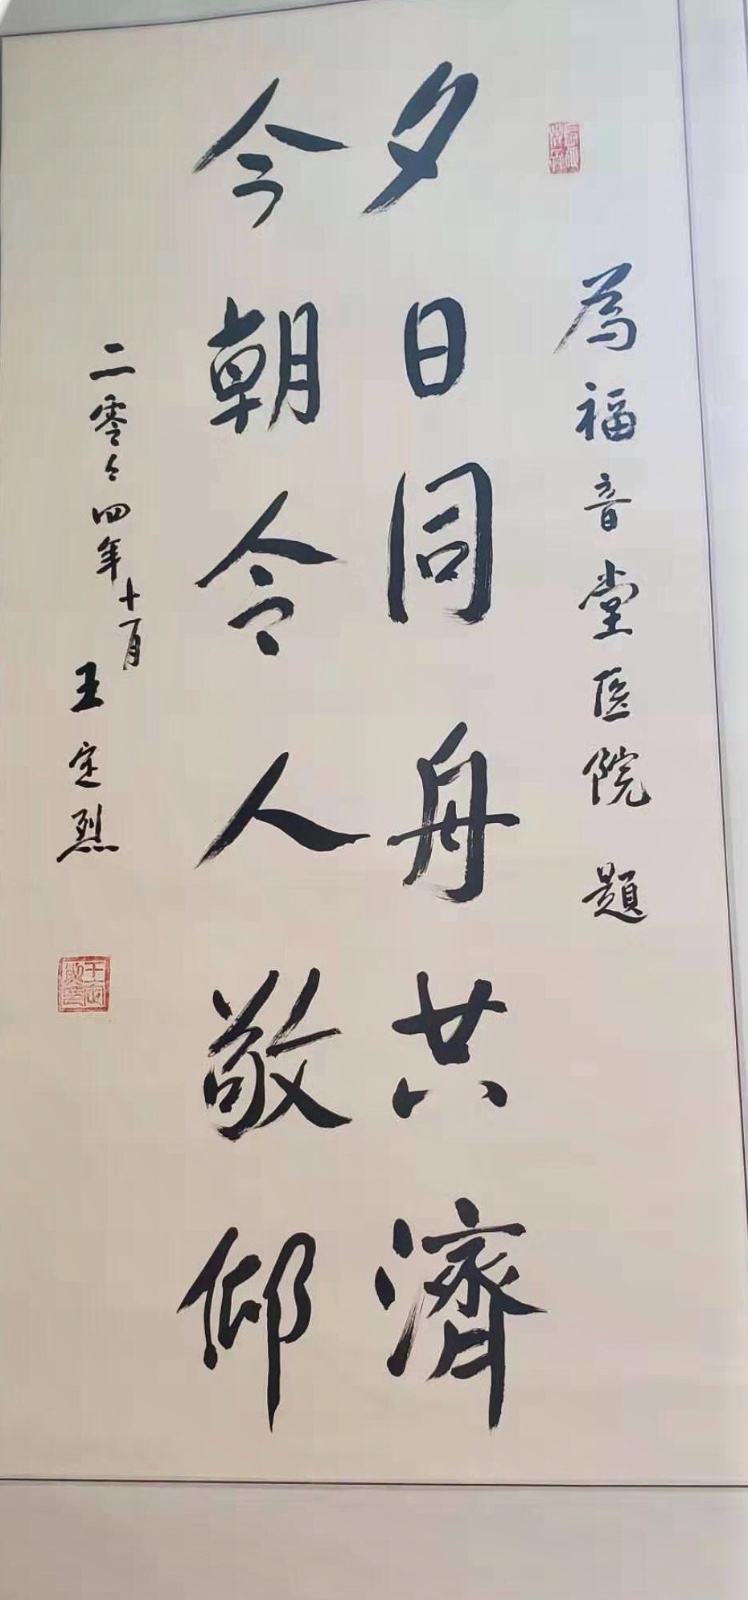 為福音堂医院 题
夕日同舟共濟
今朝令人敬仰
二零々四年十月
王定烈